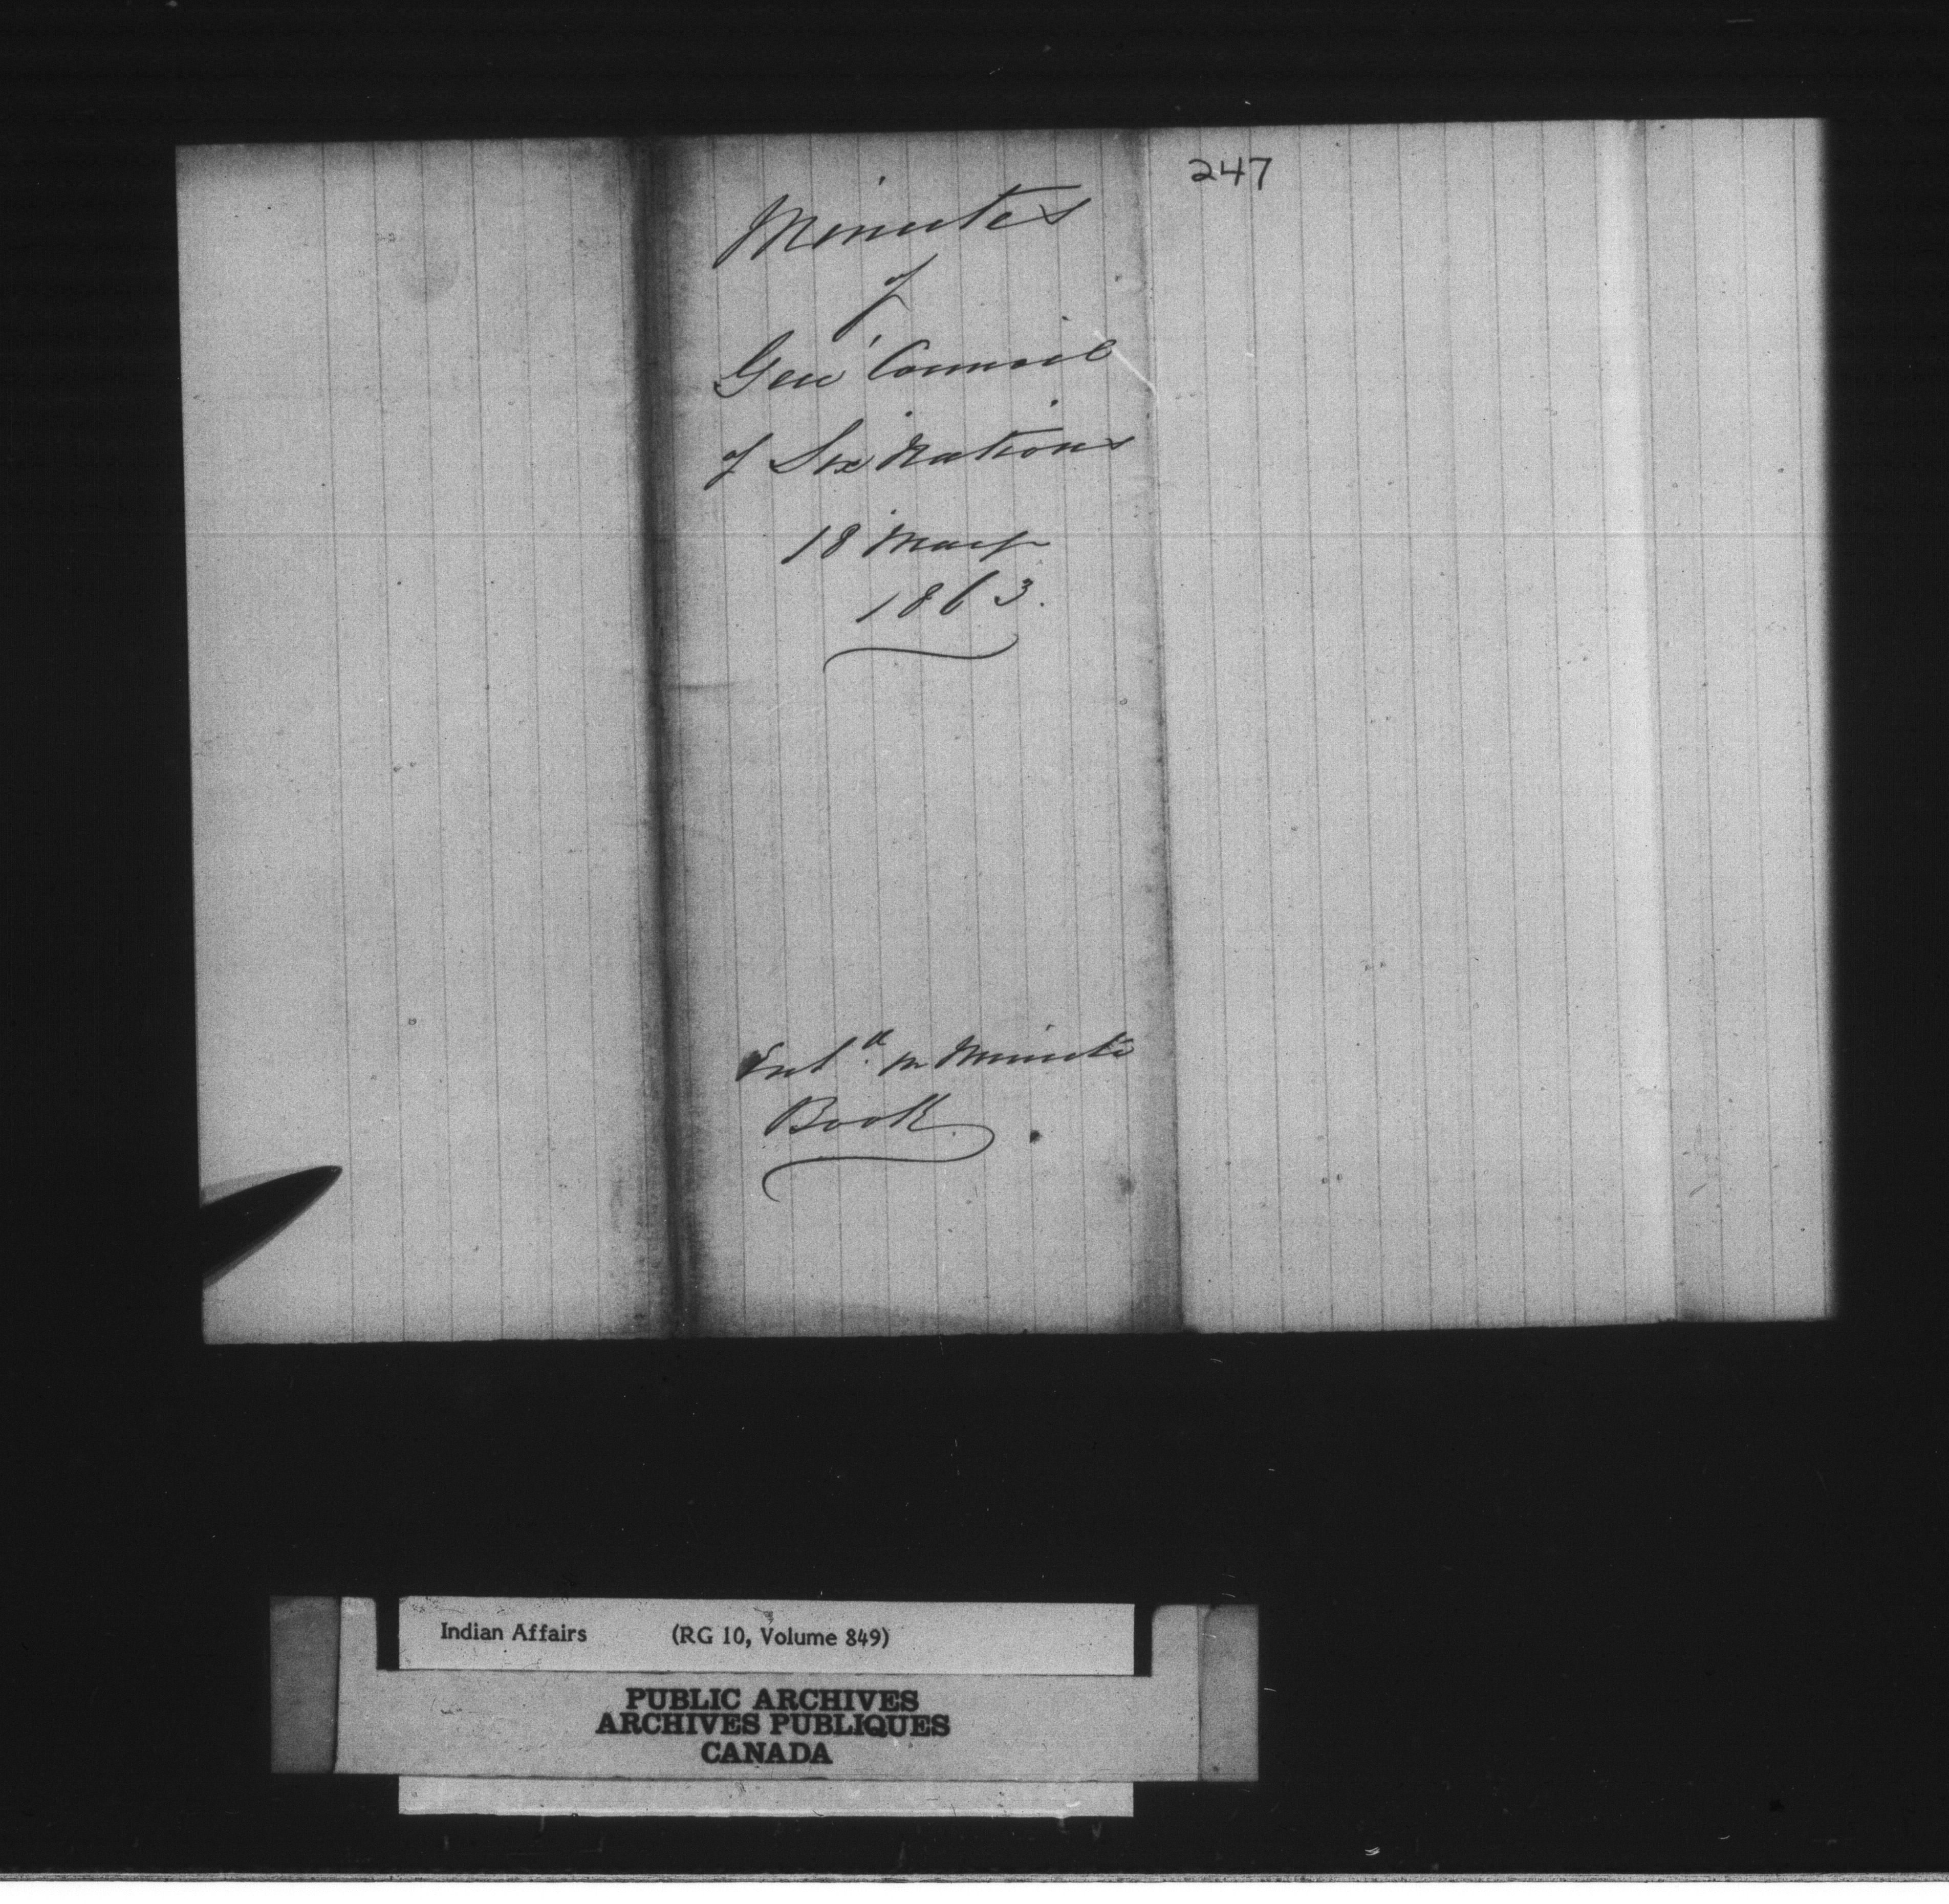 247
Minutes
of
Genl Council
of Six Nations
18 March
1863.
Entd. in Minute
Book.
Indian Affairs (RG 10, Volume 849)
PUBLIC ARCHIVES
ARCHIVES PUBLIQUES
CANADA